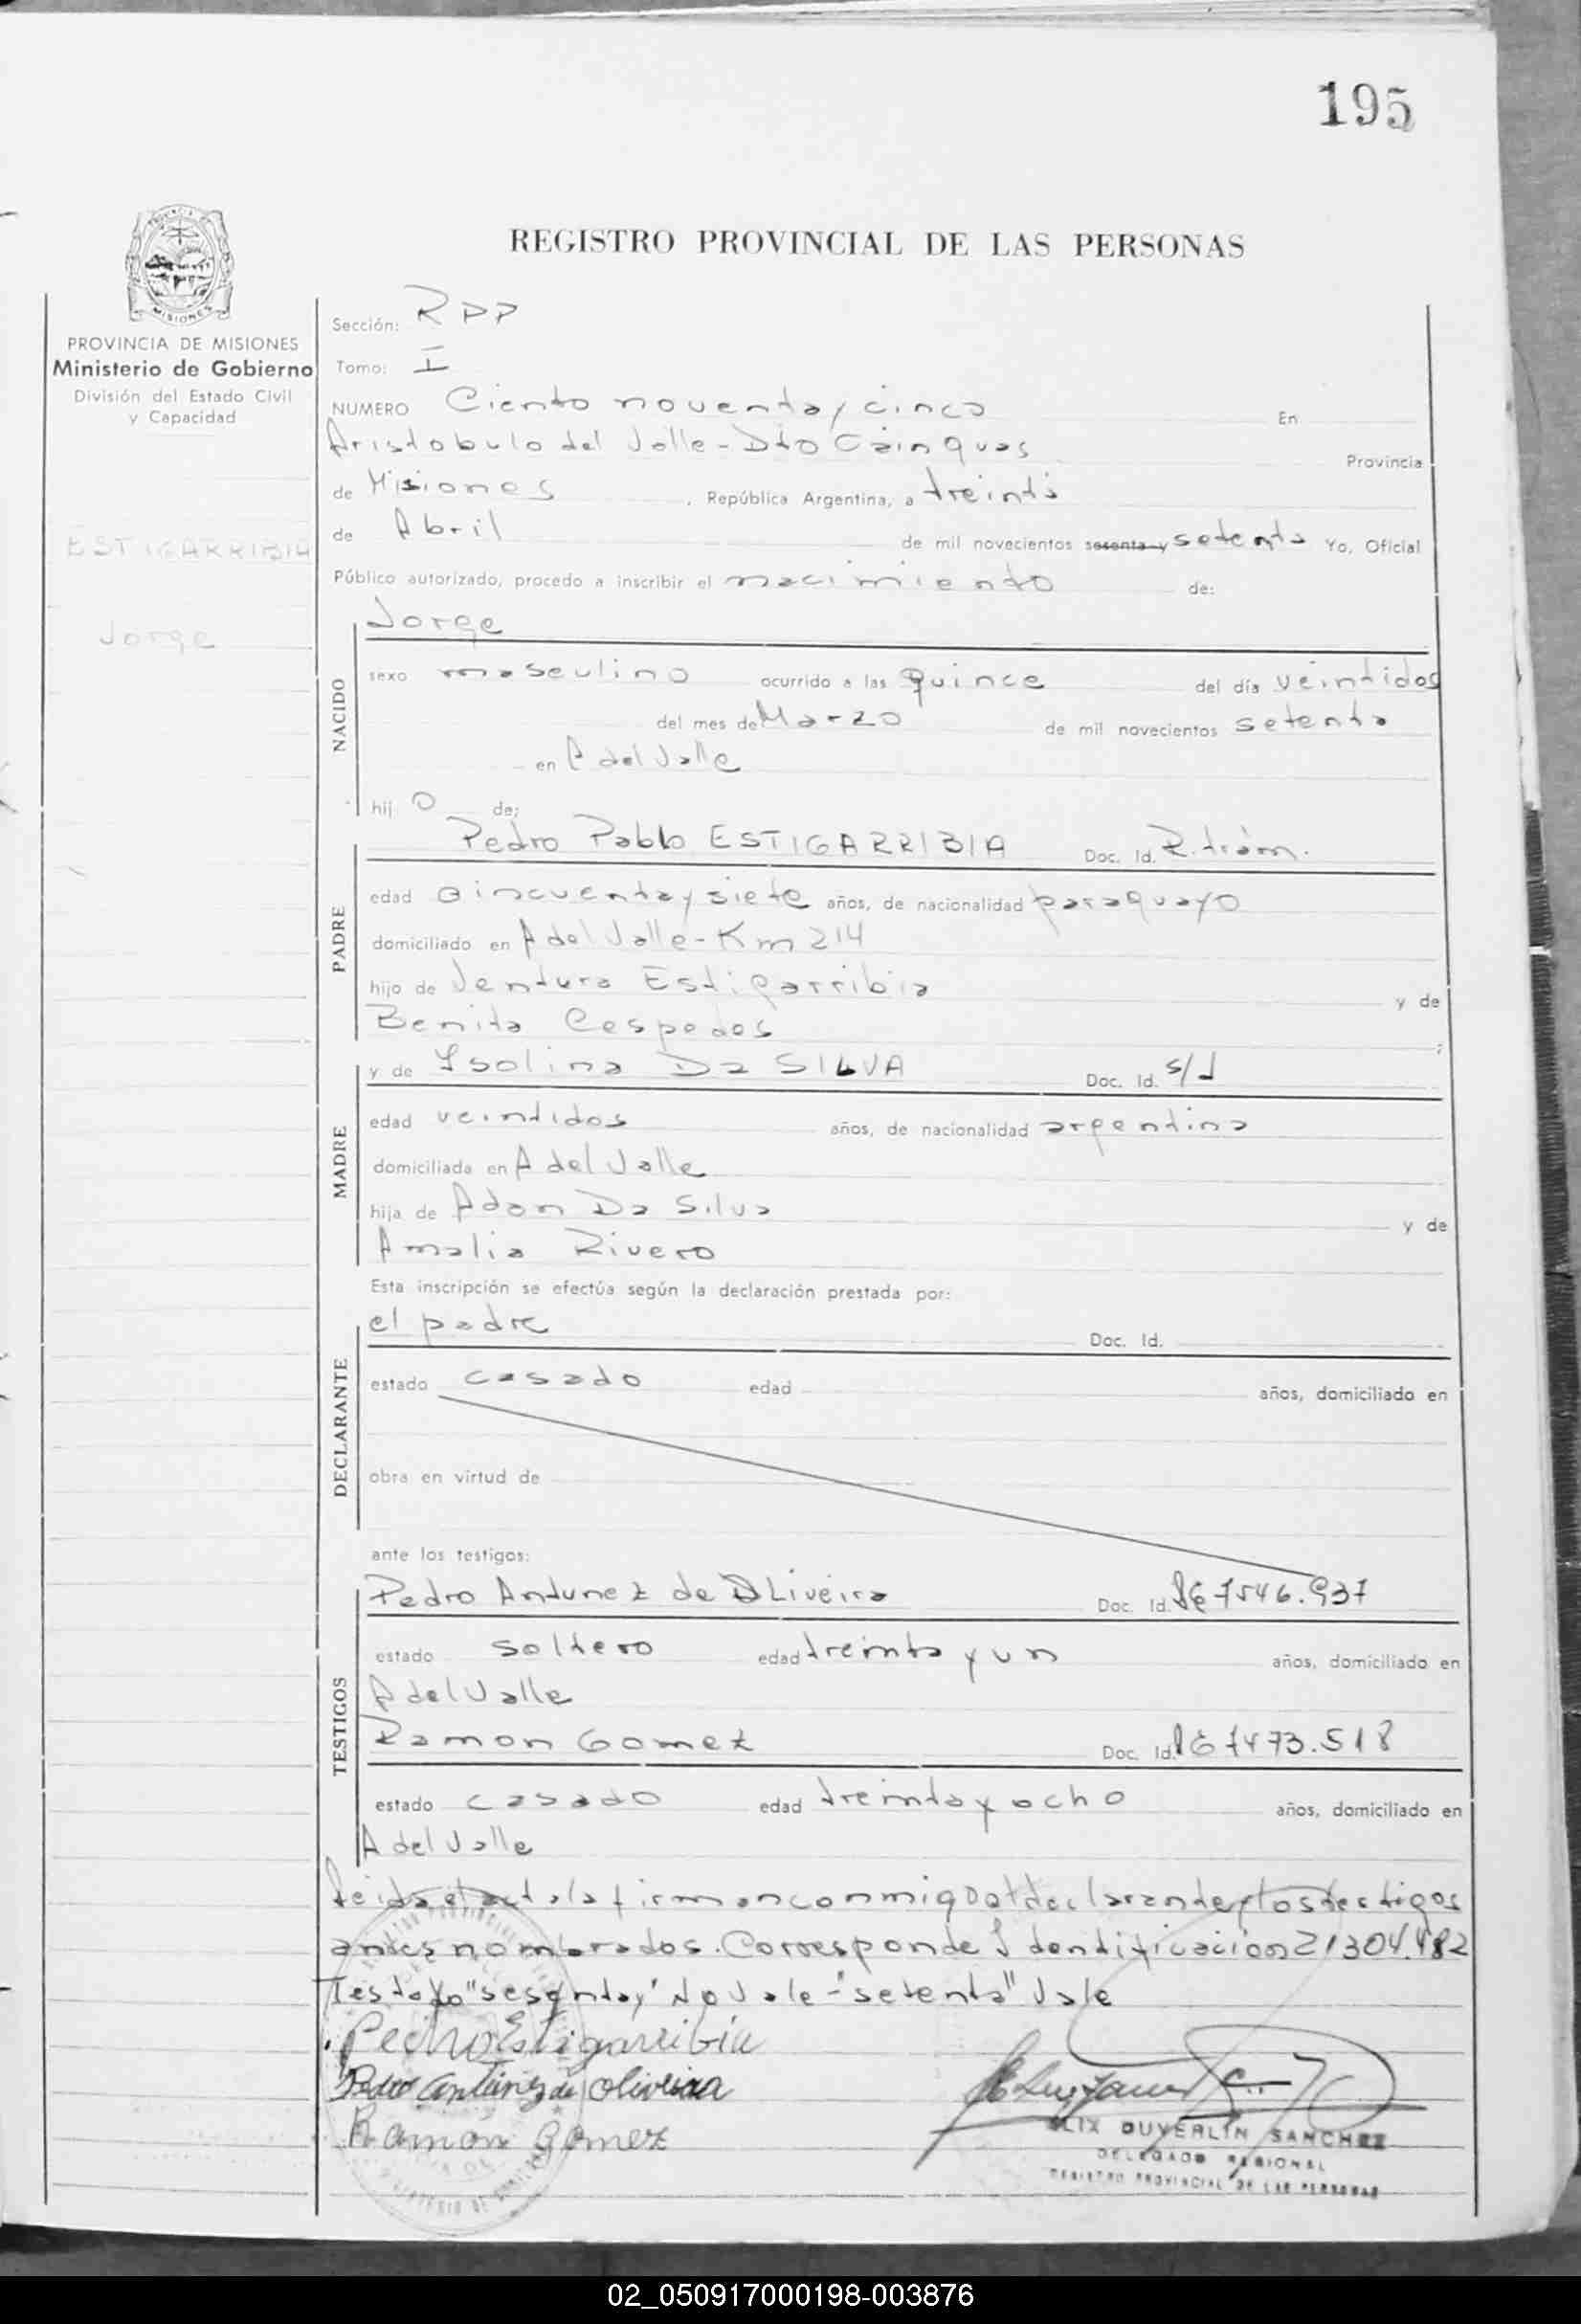 195
REGISTRO PROVINCIAL DE LAS PERSONAS
PROVINCIA DE MISIONES
Ministerio de Gobierno
División del Estado Civil
y Capacidad
ESTIGARRIBIA
Jorge
Sección: RPP
Tomo: I
NUMERO Ciento noventa y cinco En
Aristobulo del Valle - Dto Cainguas Provincia
de Misiones, República Argentina, a treinta
de Abril de mil novecientos sesenta y setenta Yo, Oficial
Público autorizado, procedo a inscribir el nacimiento de:
NACIDO
Jorge
sexo masculino ocurrido a las quince del día veintidos
del mes de Marzo de mil novecientos setenta
en A del Valle
hij o de:
PADRE
Pedro Pablo ESTIGARRIBIA Doc. Id. R. trám.
edad cincuenta y siete años, de nacionalidad paraguayo
domiciliado en A del Valle - Km 214
hijo de Ventura Estigarribia y de
Benita Cespedes ;
MADRE
y de Isolina Da SILVA Doc. Id. s/d
edad veintidos años, de nacionalidad argentina
domiciliada en A del Valle
hija de Adan Da Silva y de
Amalia Rivero
Esta inscripción se efectúa según la declaración prestada por:
DECLARANTE
el padre Doc. Id.
estado casado edad años, domiciliado en
obra en virtud de
ante los testigos:
TESTIGOS
Pedro Antunez de OLiveira Doc. Id. 7546.937
estado soltero edad treinta y un años, domiciliado en
A del Valle
Ramon Gomez Doc. Id. 7473.518
estado casado edad treinta y ocho años, domiciliado en
A del Valle
leida el acta la firman conmigo el declarante y los testigos
antes nombrados. Corresponde Identificación 21304.482
Testado "sesenta y" No Vale - "setenta" Vale
Pedro Estigarribia
Pedro Antunez de Oliveira
Ramon Gomez
DUVERLIN SANCHEZ
DELEGADO REGIONAL
REGISTRO PROVINCIAL DE LAS PERSONAS
02_050917000198-003876